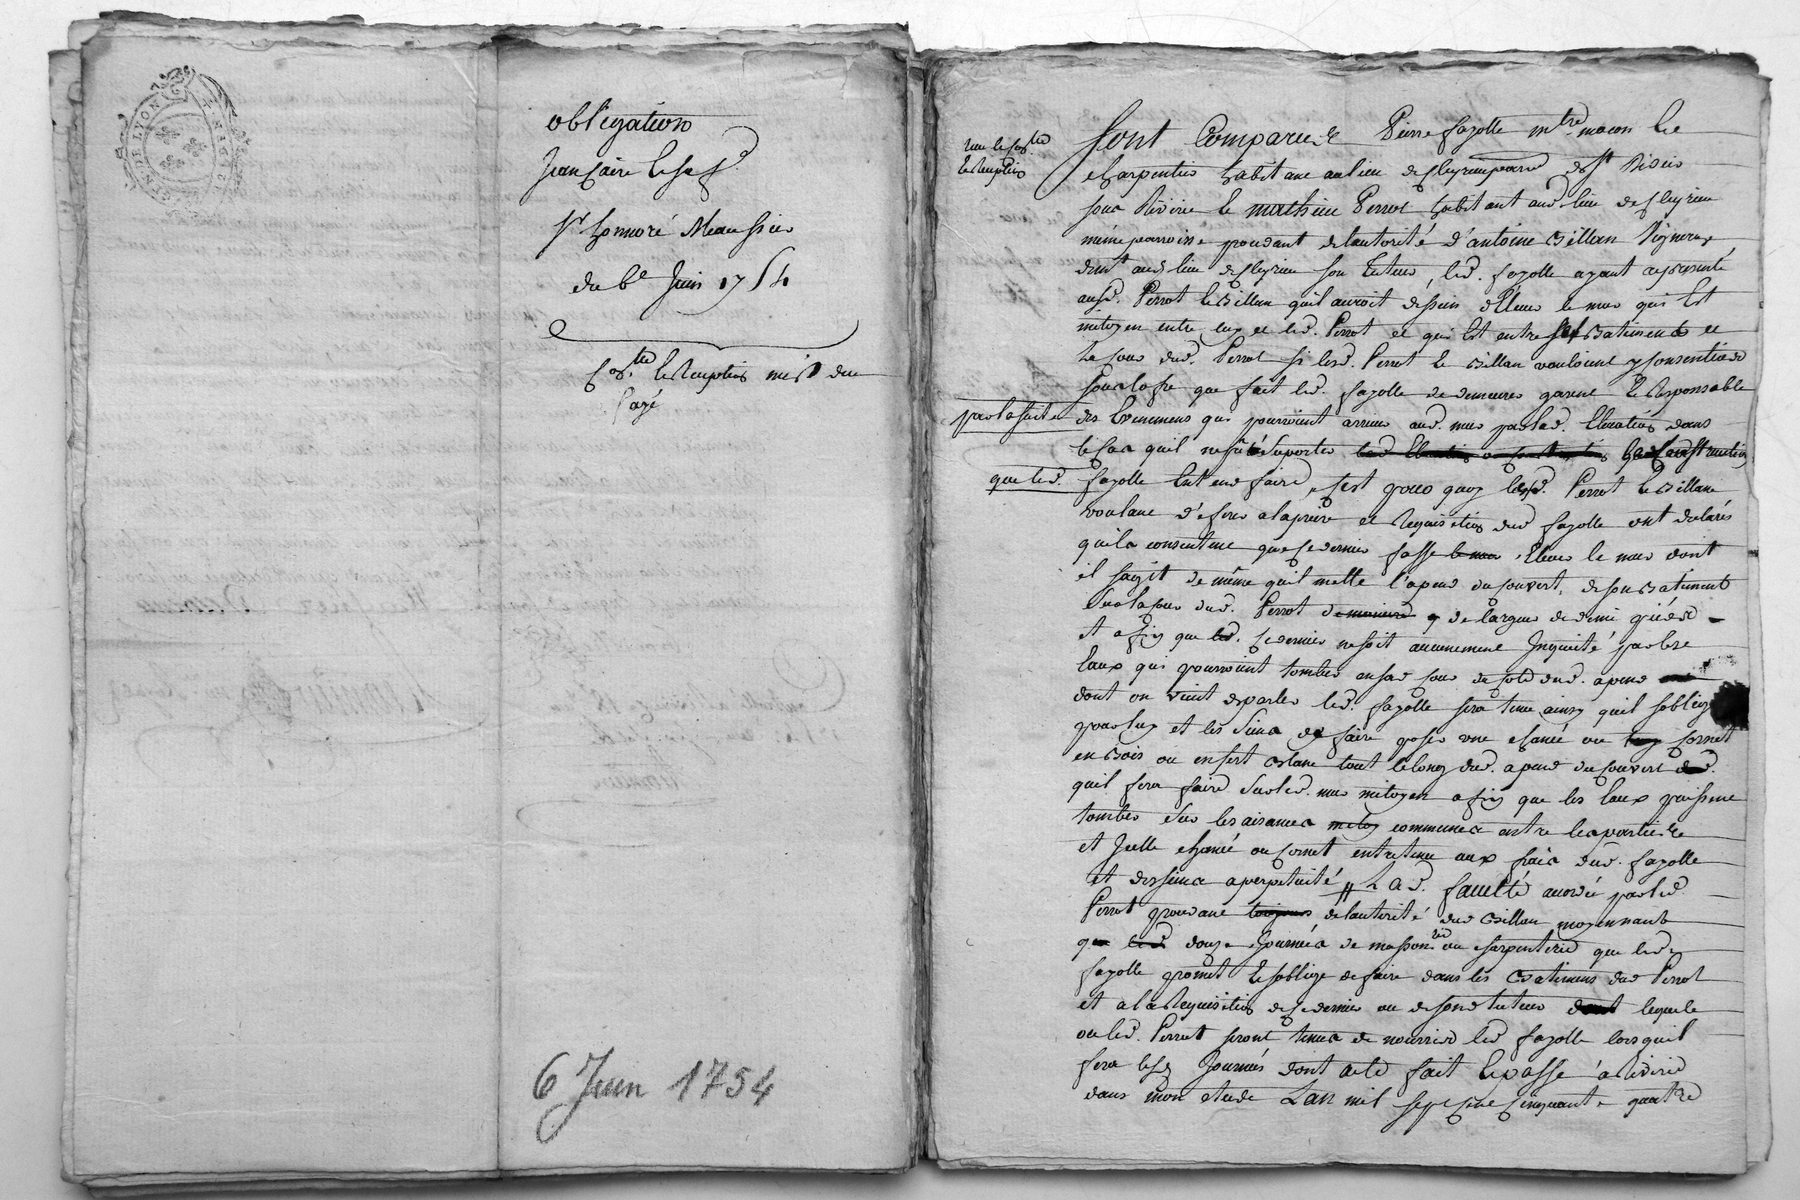 DE LYON
obligation
Jean
Sr honnoré
du 6e Juin 1754
payé
6 Juin 1754
Sont Comparu Pierre fayolle mtre macon Et
charpentier habitant au lieu de
sous Riverie Et mathieu Perrot habitant aud. lieu de
même parroisse procedant de lautorité d'antoine Billan Vigneron
demt aud. lieu de son tuteur, led. fayolle ayant representé
ausd. Perrot Et Billan quil auroit dessein d'Elever le mur qui Est
mitoyen entre luy et led. Perrot et qui Est entre ses Batiments et
la cour dud. Perrot si lesd. Perrot Et Billan vouloient y consentir
sous lofre que fait led. fayolle de demeurer garent Et Responsable
par la suite
des Evenemens qui pourroient arriver aud. mur par lad. Elevation dans
le cas quil ne put suporter la Construction
que led.
fayolle Entend faire, C'est pour quoy lesd. Perrot Et Billan
voulant d'eferer a la priere et Requisition dud. fayolle ont declarés
quils consentent que ce dernier fasse Elever le mur dont
il sagit de même quil mette l'apend du couvert, de son Batiment
Sur la cour dud. Perrot de largeur de demi pied
et afin que ce dernier ne soit aucunement Inquieté par les
Eaux qui pourroient tomber en sad. cour dud. apend
dont on vient de parler led. fayolle sera tenu ainsy quil soblige
par luy et les siens de faire poser une chanée ou Cornet
en Bois ou en fert Blanc tout le long dud. apend du couvert
quil fera faire sur led. mur mitoyen afin que les Eaux puissent
tomber sur les aisances communes entre les parties
et Icelle chanée ou Cornet entretenu aux frais dud. fayolle
et des siens a perpetuité, Lad. faculté accordée par led.
Perrot procedant de lautorité dud. Billan moyennant
douze Journées de massonrie ou charpenterie que led.
fayolle promet Et soblige de faire dans les Batimens dud. Perrot
et a la Requisition de ce dernier ou de sond. tuteur lequel
ou led. Perrot seront tenus de nourrir led. fayolle lorsquil
fera lesd. Journées dont acte fait Et passé à Riverie
dans mon etude Lan mil sept cent cinquante quatre